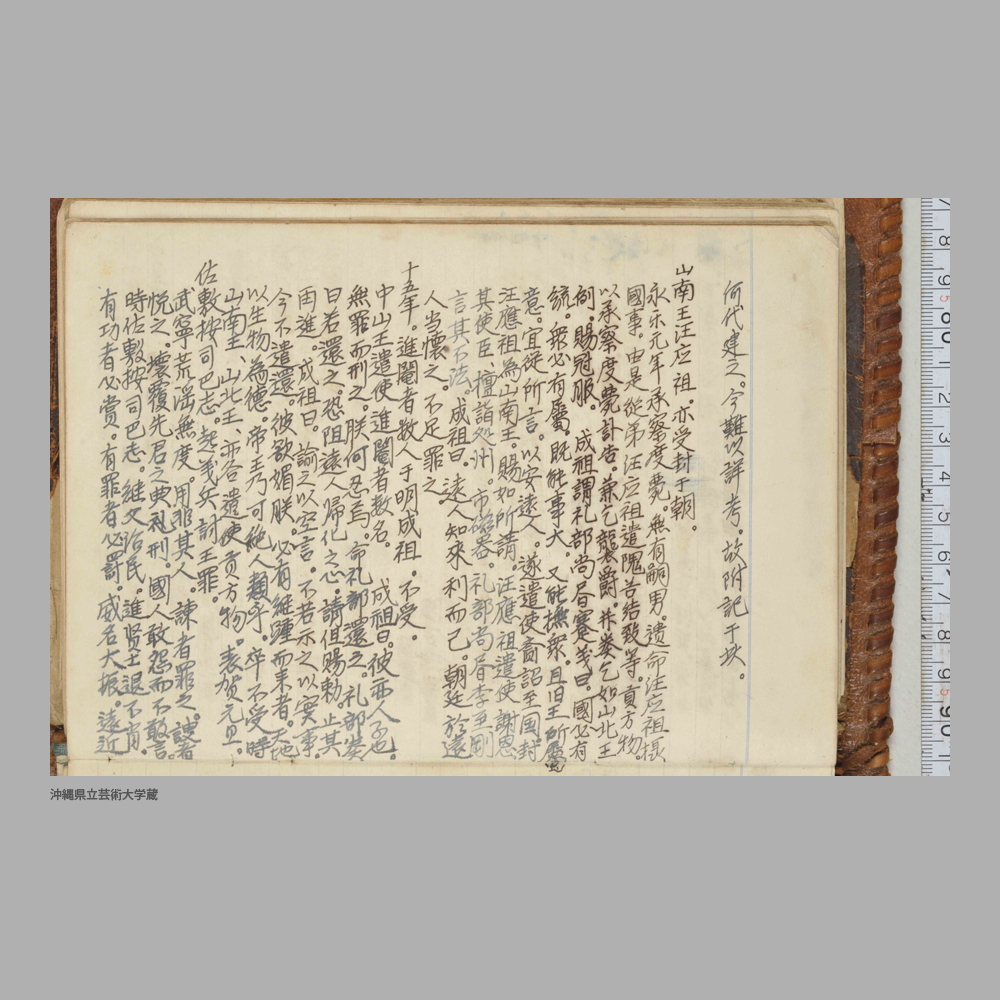 何代建之。今難以詳考。故附記于玆。
山南王汪应祖。亦受封于朝。
永乐元年承察度薨。無有嗣男。遺命汪应祖摂
國事。由是從弟汪应祖遣隗谷結致等。貢方物。
以承察度薨訃告。兼乞襲爵。并奏乞如山北王
例。賜冠服。成祖謂礼部尚書蹇义曰。國必有
統。眾必有屬。既能事大。又能撫衆。且旧王所屬
意。宜從所言。以安遠人。遂遣使齎詔至国。封
汪應祖為山南王。賜如所請。汪應祖遣使謝恩。
其使臣、擅詣処州。市磁器。礼部尚書李至剛
言其不法。成祖曰 遠人知來利而已。朝廷於遠
人当懷之。不足罪之
十五年。進閹者数人于明成祖 不受。
中山王遣使進閹者数名。成祖曰。彼亦人子也。
無罪而刑之。朕何忍焉。命礼部還之。礼部奏
曰若還之。恐阻遠人帰化之心。請但賜勅止其
再進。成祖曰。諭之以空言。不若示之以実事。
今不遣還。彼欲媚朕。必有継踵而来者。天地
以生物為德。帝王乃可絶人類乎。卒不受 時
山南王、山北王亦各遣使貢方物。表贺元旦
佐敷按司巴志。起义兵討王罪。
武寧荒滛無度。用非其人。諫者罪之。諛者
悦之。壊覆先君之典礼刑。國人敢怨而不敢言。
時佐敷按司巴志。継父治民。進贤士退不肖。
有功者必賞。有罪者必罰。威名大振。遠近
沖縄県立芸術大学蔵